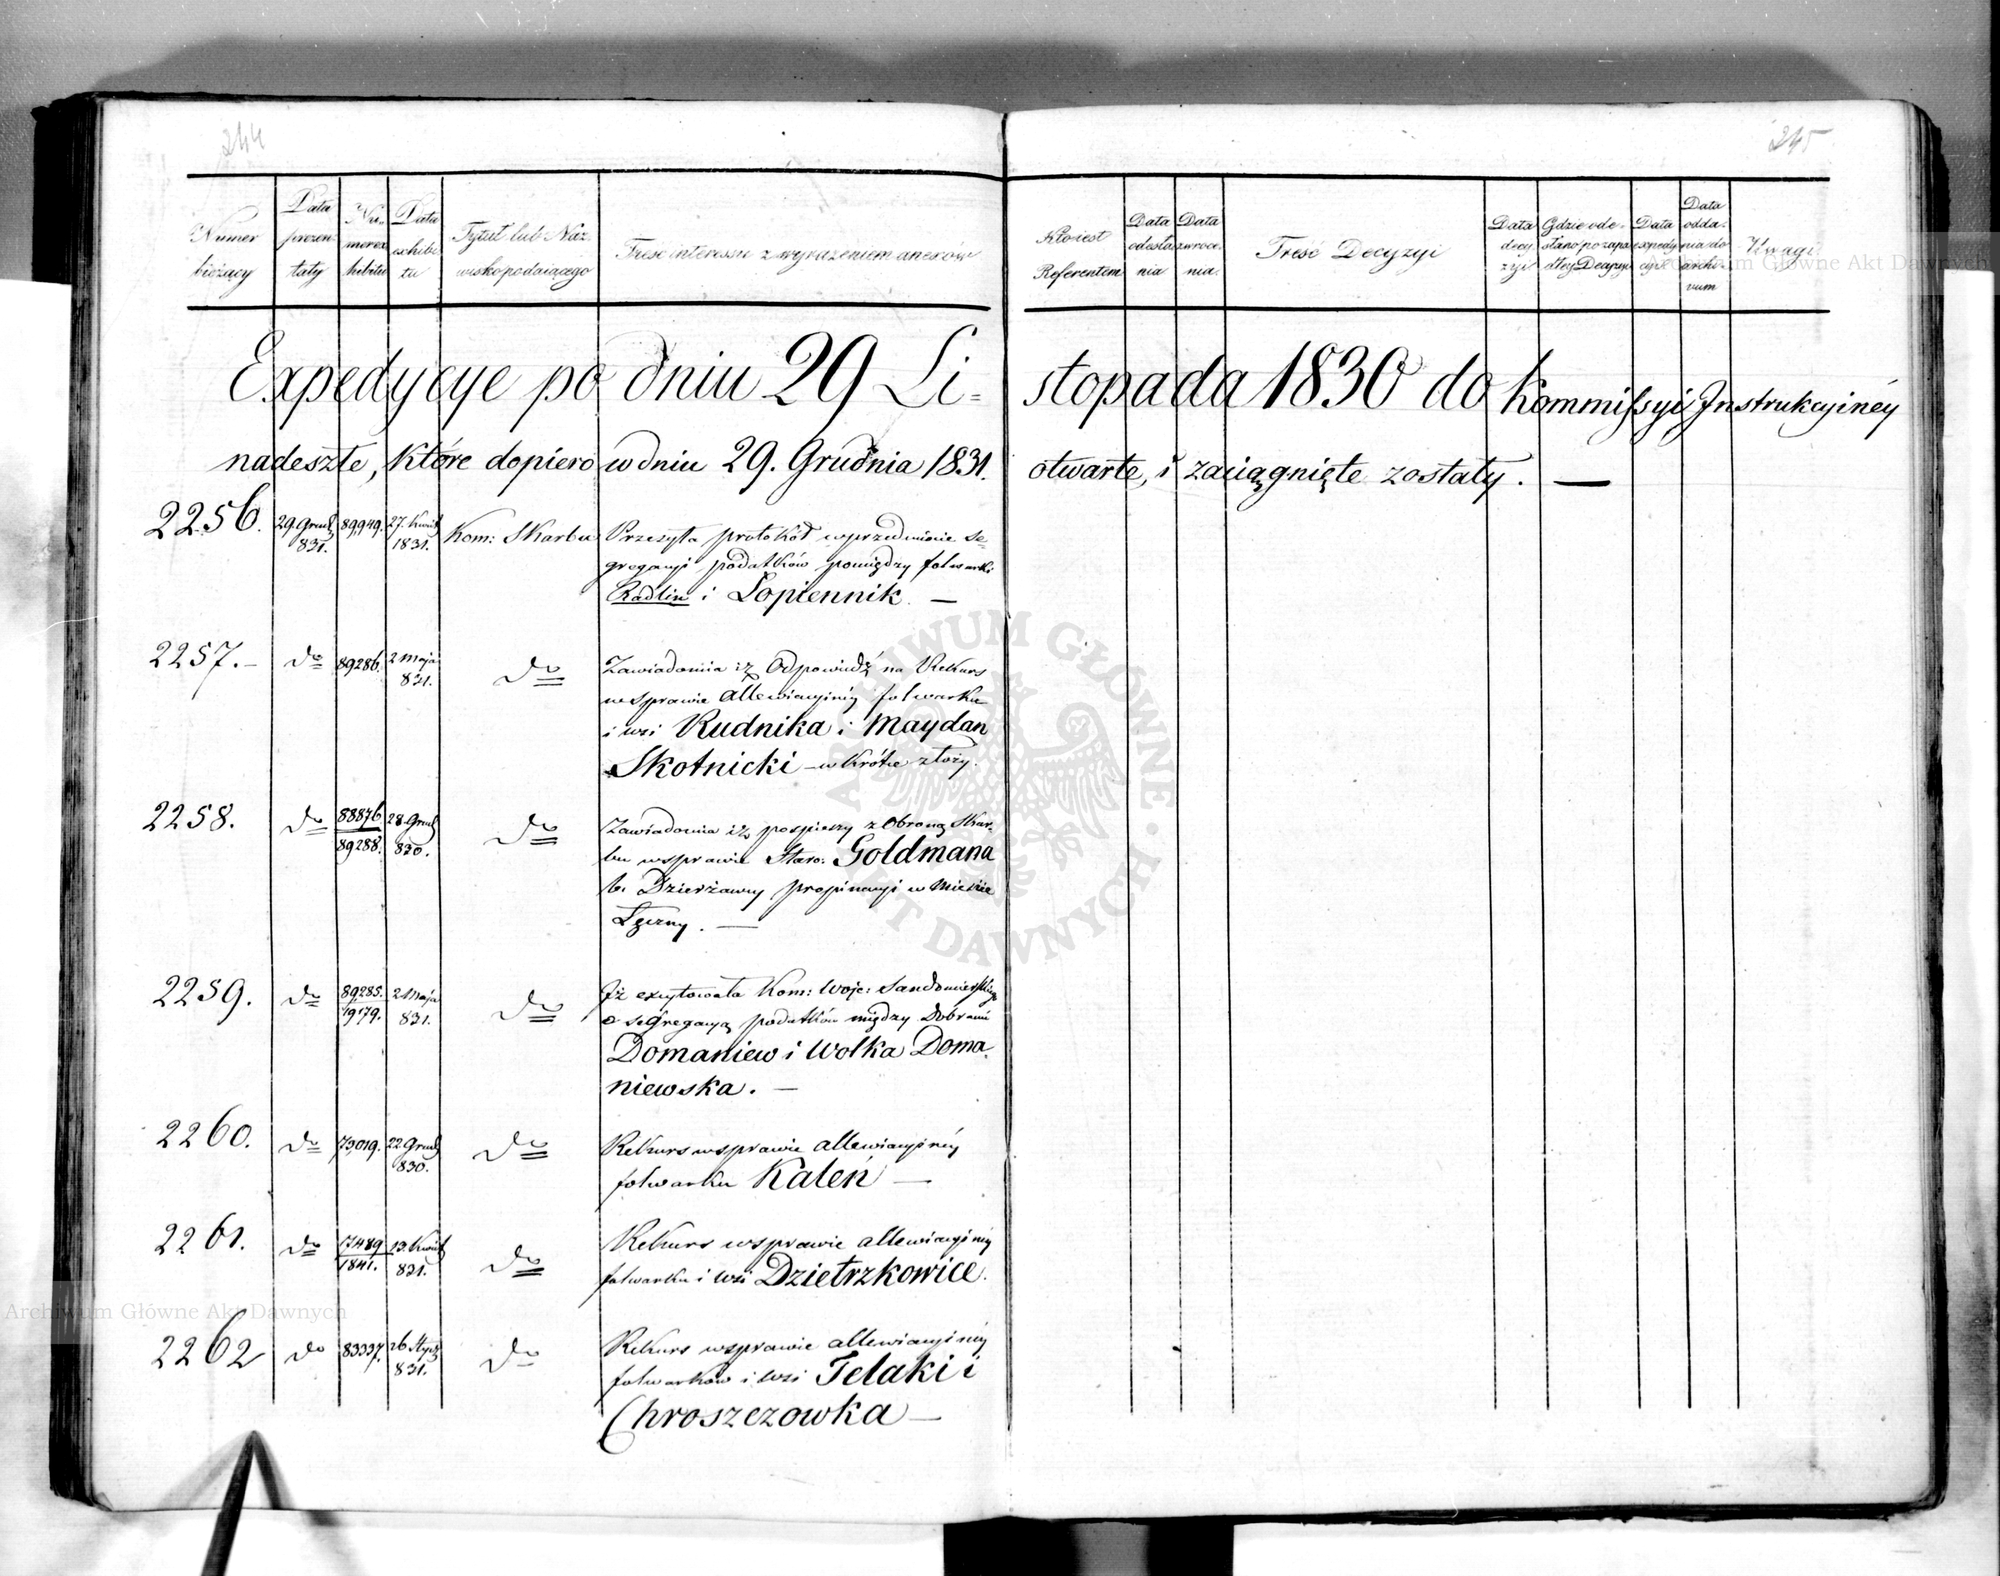 244
245
Numer bieżący
Data prezentaty
Numer exhibitu
Data exhibitu
Tytuł lub Nazwisko podaiącego
Treść interessu z wyrażeniem anexów
Kto iest Referentem
Data odesłania
Data zwrócenia
Treść Decyzyi
Data decyzyi
Gdzie odesłano po zapadłey Decyzyi
Data expedycyi
Data oddania do archivum
Uwagi
Expedycye po dniu 29 Listopada 1830 do Kommissyi Instrukcyinéy
nadeszłe, które dopiero w dniu 29. Grudnia 1831. otwarte, i zaciągnięte zostały. —
2256. 29. Grud. 831. 89,949. 27. Kwiet 1831. Kom: Skarbu Przesyła protokół w przedmiocie se-
gregacyi podatków pomiędzy folwarki
Radlin i Łopiennik. —
2257. – do 89286. 2 Maja 831. do Zawiadomia iż Odpowiedź na Rekurs
w sprawie allewiacyinéy folwarku
i wsi Rudnika i Maydan
Skotnicki – w krótce złoży.
2258. do 88876 89288. 28 Grud 830. do Zawiadomia iż pospieszy z Obroną Skar-
bu w sprawie Staro: Goldmana
b. Dzierżawcy propinacyi w mieście
Łęczny. —
2259. do 89285. 19179. 2 Maja 831. do Iż excytowała Kom: Woje: Sandomierskiego
o segregacyą podatków między Dobrami
Domaniew i Wolka Doma-
niewska. —
2260. do 73019. 22 Grud 830. do Rekurs w sprawie allewiacyinéy
folwarku Kaleń —
2261. do 7489 1841. 23. Kwiet 831. do Rekurs w sprawie allewiacyinéy
folwarku i wsi Dzietrzkowice.
2262 do 83337. 26 Stycz 831. do Rekurs w sprawie allewiacyinéy
folwarków i wsi Telaki i
Chroszczowka —
Archiwum Główne Akt Dawnych
Archiwum Główne Akt Dawnych
ARCHIWUM GŁÓWNE AKT DAWNYCH